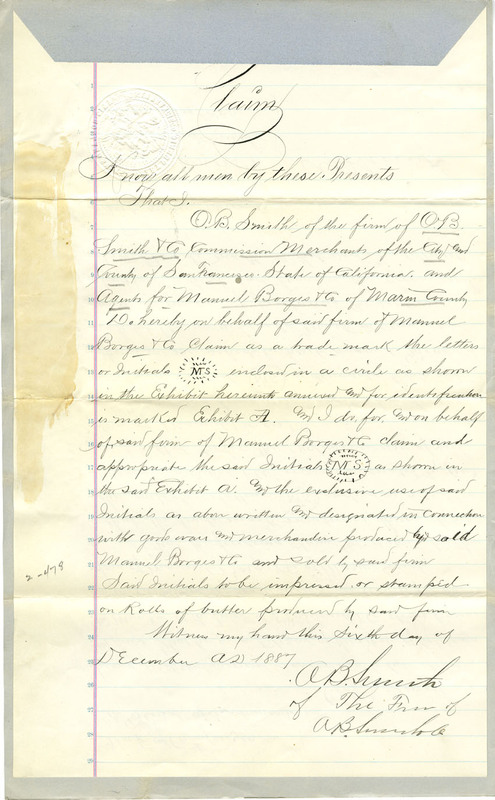 Claim
Know all men by these Presents
That I.
O.B. Smith of the firm of O.B.
Smith & Co Commission Merchants of the City and
County of San Francisco. State of California. and
Agents for Manuel Borges & Co of Marin County
Do hereby on behalf of said firm of Manuel
Borges & Co Claim as a trade mark the letters
or Initials MS enclosed in a circle as shown
in the Exhibit hereunto annexed and for identification
is marked Exhibit A. And I do, for, and on behalf
of said firm of Manuel Borges & Co claim and
appropriate the said Initials MS as shown in
the said Exhibit A. And the exclusive use of said
Initials as above written and designated in connection
with goods wares and merchandise produced by said
Manuel Borges & Co and sold by said firm
Said Initials to be impressed or stamped
on Rolls of butter produced by said firm
Witness my hand this Sixth day of
December AD 1887
O.B. Smith
of The Firm of
O.B. Smith & Co
2-478